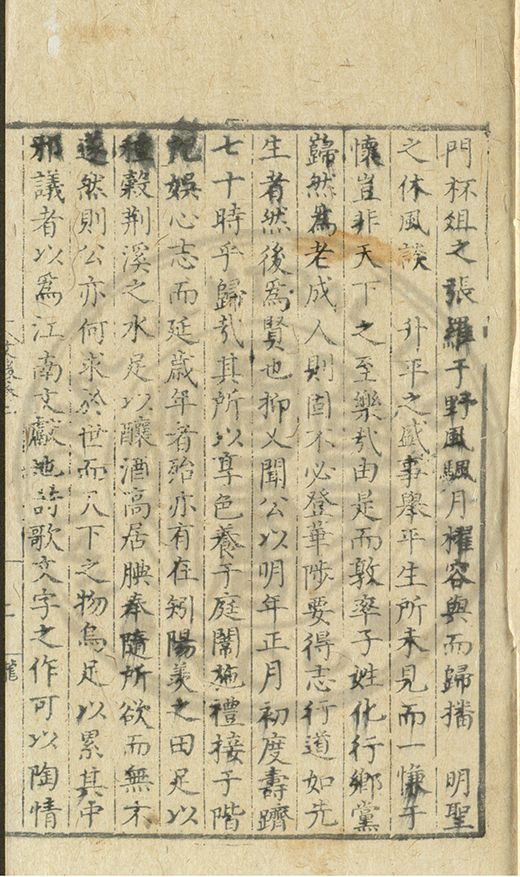 門杯俎之張羅于野風颿月櫂容與而歸播　明聖
之休風談　升平之盛事舉平生所未見而一慊于
懷豈非天下之至樂哉由是而敦率子姓化行鄉黨
歸然爲老成人則固不必登華陟要得志行道如先
生者然後爲賢也抑又聞公以明年正月初度壽躋
七十時乎歸哉其所以享色養于庭闈施禮接于階
戺娛心志而延歲年者殆亦有在矧陽羨之田足以
種穀荆溪之水足以釀酒高居腆奉隨所欲而無才
遂然則公亦何求於世而天下之物烏足以累其中
邪議者以爲江南文獻詩歌文字之作可以陶情